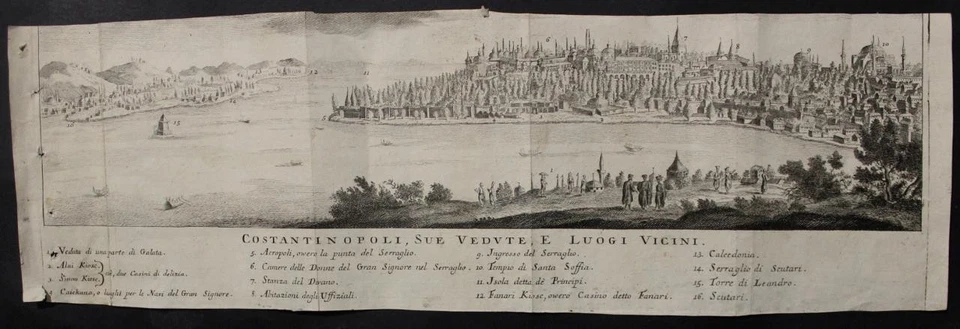 COSTANTINOPOLI, SUE VEDVTE, E LUOGI VICINI.
1. Veduta di una parte di Galata.
2. Alai Kiosc
3. Sinan Kiosc
cioè, due Casini di delizia.
4. Caichana, o luoghi per le Navi del Gran Signore.
5. Acropoli, overo la punta del Serraglio.
6. Camere delle Donne del Gran Signore nel Serraglio.
7. Stanza del Divano.
8. Abitazioni degli Uffiziali.
9. Ingresso del Serraglio.
10. Tempio di Santa Soffia.
11. Isola detta de Principi.
12. Fanari Kissc, overo Casino detto Fanari.
13. Calcedonia.
14. Serraglio di Scutari.
15. Torre di Leandro.
16. Scutari.